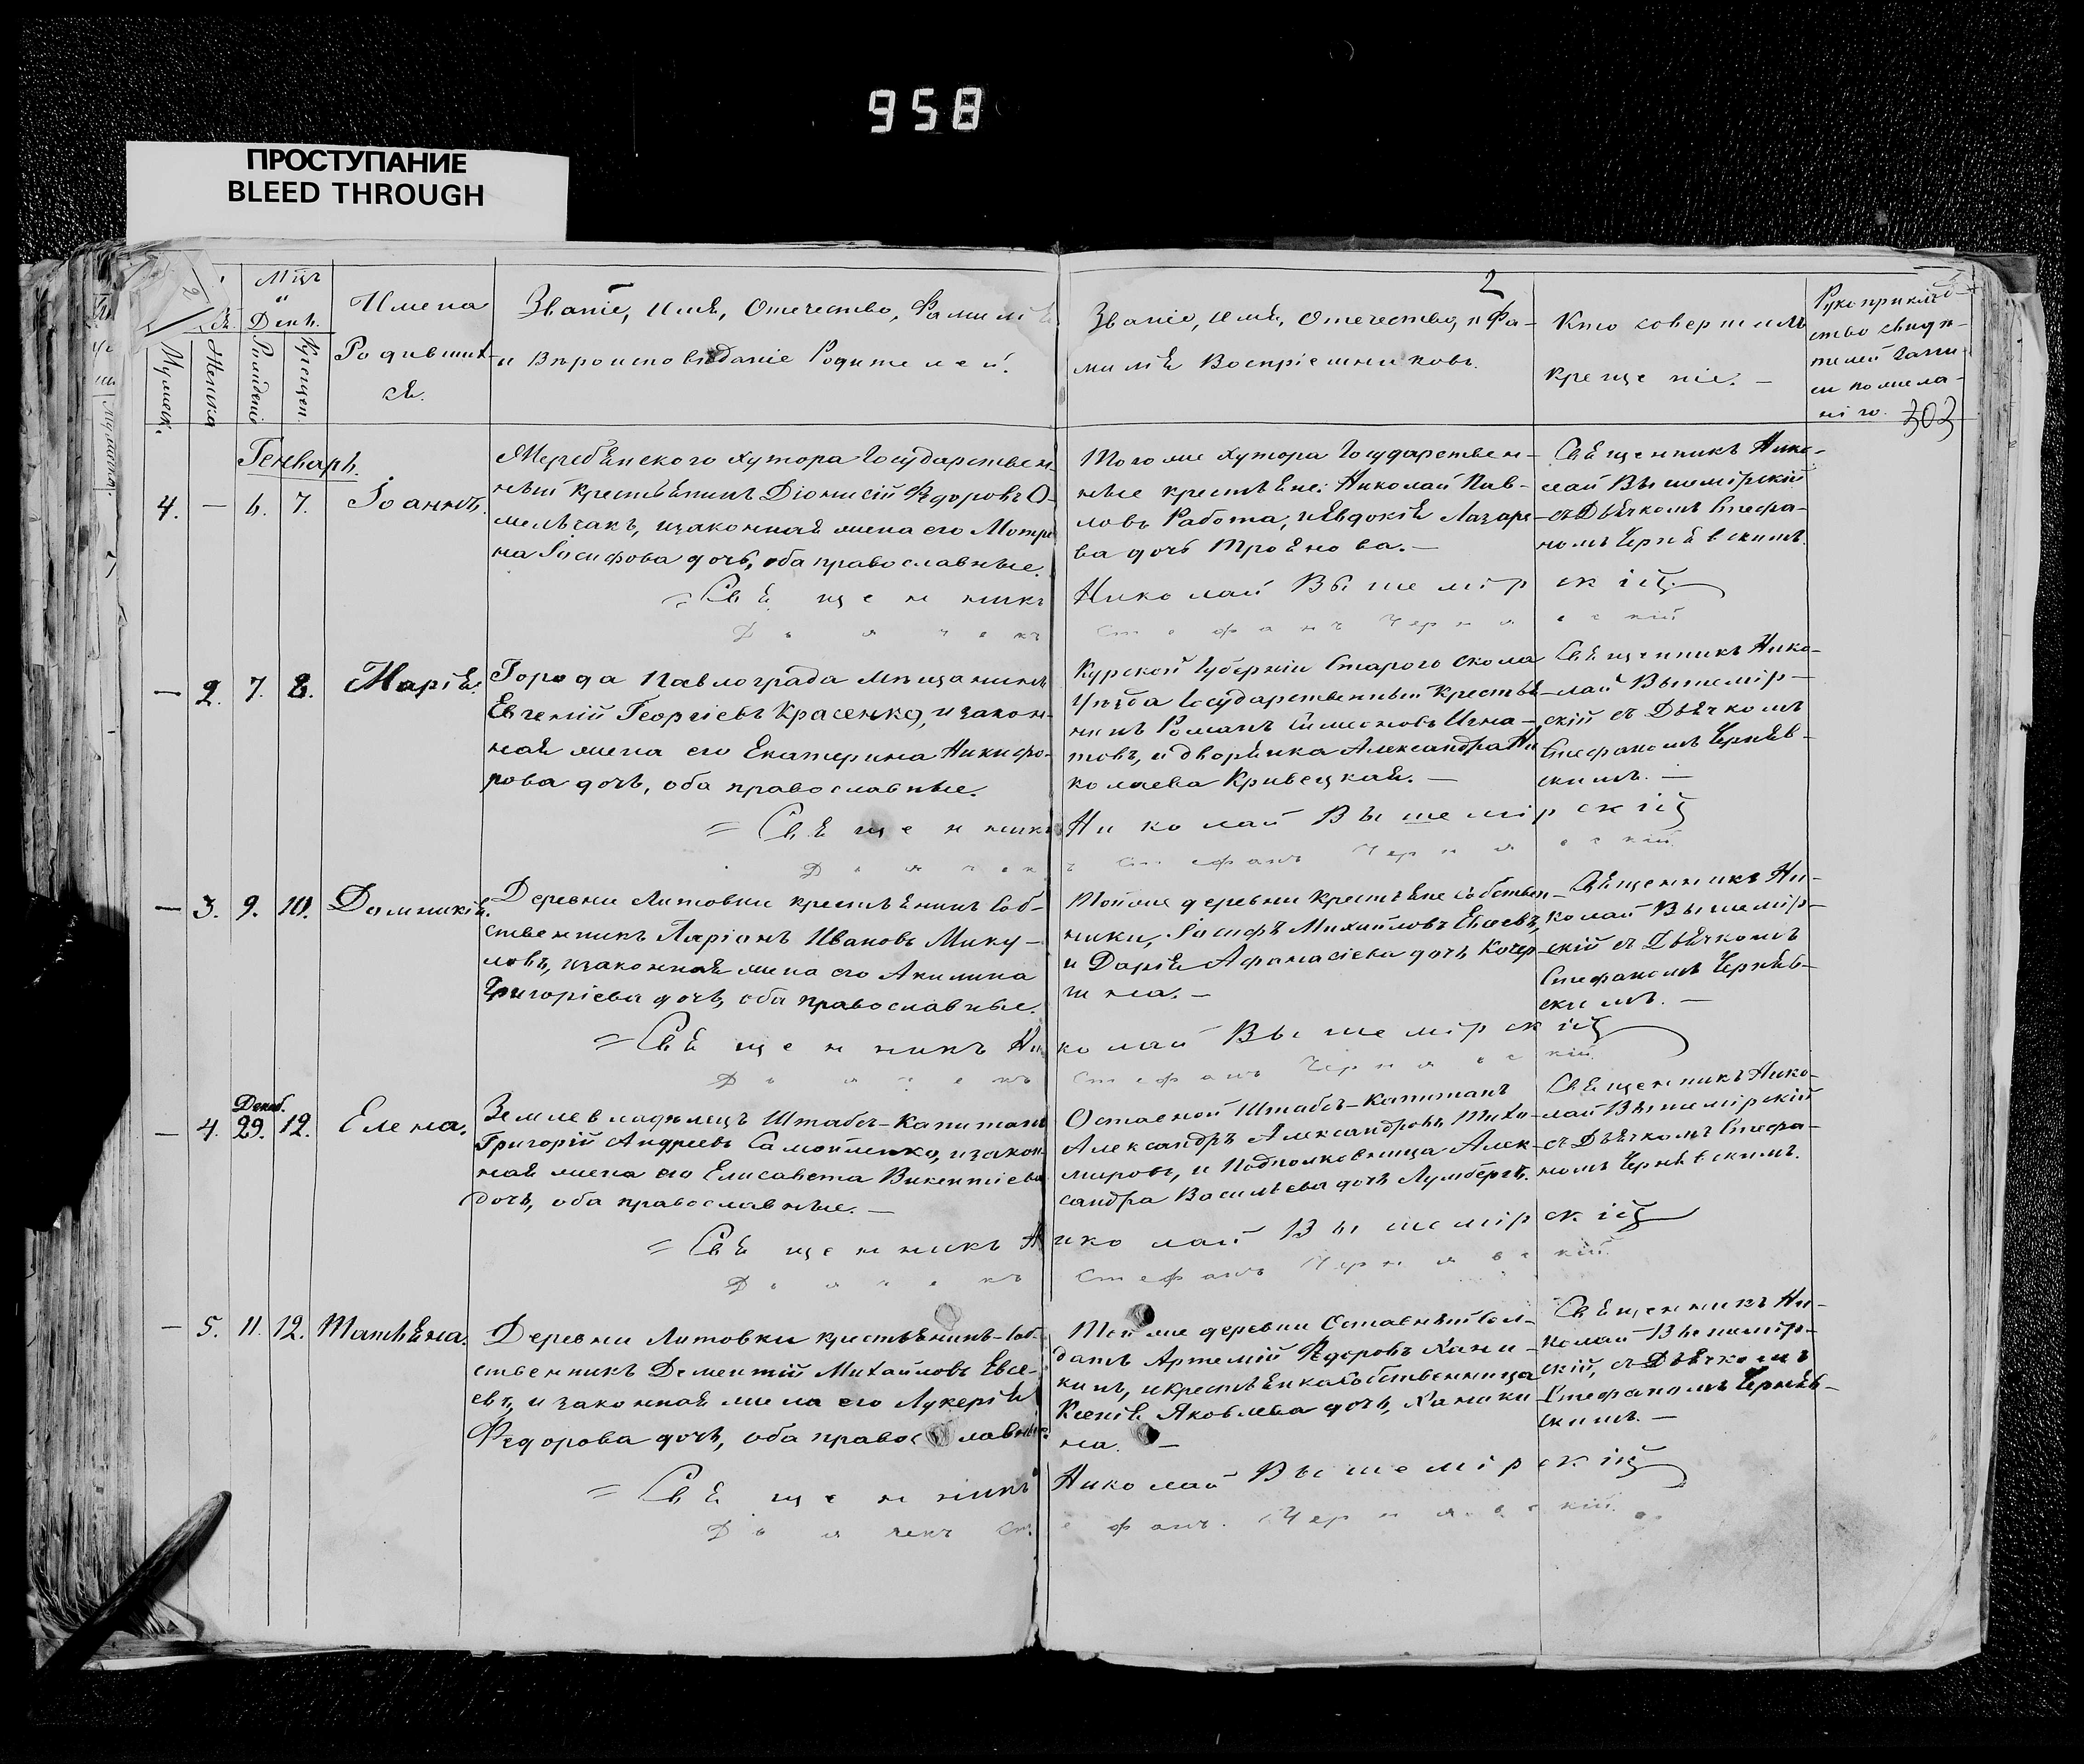 958
ПРОСТУПАНИЕ
BLEED THROUGH
2
Мцъ
и
День.
Мужеск.
Женска
Рожденiе
Крещен.
Имена
Родивших-
ся.
Званiе, имя, Отечество, Фамилiя
и Вѣроисповѣданiе Родителей.
Званiе, имя, Отечество, и Фа-
милiя Воспрiемниковъ.
Кто совершилъ
крещенiе. —
Рукоприклад-
ство свидѣ-
телей записи
по жела-
нiю.
303
Генварь.
4. — 6. 7. Iоаннъ.
Государствен-
ный крестьянинъ Дiонисiй Ѳедоровъ О-
мельчакъ, и законная жена его Мотро-
на Iосифова дочь, оба православные.
Того же хутора Государствен-
ные крестьяне: Николай Пав-
ловъ Работа, и Евдокiя Лазаре-
ва дочь Троянова. —
Священникъ Нико-
лай Вышемiрскiй
съ Дьячкомъ Стефа-
номъ Чернявскимъ.
= Священникъ Николай Вышемiрскiй
Дьячекъ Стефанъ Чернявскiй
— 2. 7. 8. Марiя.
Города Павлограда мѣщанинъ
Евгенiй Георгiевъ Красенко, и закон-
ная жена его Екатерина Никифо-
рова дочь, оба православные.
Курской Губернiи Старого Оскола
Уѣзда Государственный крестья-
нинъ Романъ Симеоновъ Игна-
товъ, и дворянка Александра Ни-
колаева Кривецкая. —
Священникъ Нико-
лай Вышемiр-
скiй съ Дьячкомъ
Стефаномъ Черняв-
скимъ. —
= Священникъ Николай Вышемiрскiй
Дьячекъ Стефанъ Чернявскiй
— 3. 9. 10. Домникiя.
Деревни Литовки крестьянинъ Соб-
ственникъ Ларiонъ Ивановъ Мику-
ловъ, и законная жена его Акилина
Григорiева дочь, оба православные.
Той же деревни крестьяне собствен-
ники, Iосифъ Михайловъ Евсеевъ,
и Дарiя Афанасiева дочь Кочер-
гина. —
Священникъ Ни-
колай Вышемiр-
скiй съ Дьячкомъ
Стефаномъ Черняв-
скимъ. —
= Священникъ Николай Вышемiрскiй
Дьячекъ Стефанъ Чернявскiй
Декаб.
— 4. 29. 12. Елена.
Землевладѣлецъ Штабсъ-Капитанъ
Григорiй Андреевъ Самойленко, и закон-
ная жена его Елисавета Викентiева
дочь, оба православные. —
Отставной Штабсъ-Капитанъ
Александръ Александровъ Тихо-
мировъ, и Подполковница Алек-
сандра Васильева дочь Лумбергъ.
Священникъ Нико-
лай Вышемiрскiй
съ Дьячкомъ Стефа-
номъ Чернявскимъ.
= Священникъ Николай Вышемiрскiй
Дьячекъ Стефанъ Чернявскiй
— 5. 11. 12. Татьяна.
Деревни Литовки крестьянинъ-Соб-
ственникъ Дементiй Михайловъ Евсе-
евъ, и законная жена его Лукерiя
Ѳедорова дочь, оба православные.
Той же деревни Отставный Сол-
датъ Артемiй Ѳедоровъ Хани-
кинъ, и крестьянка Собственница
Ксенiя Яковлева дочь, Ханики-
на. —
Священникъ Ни-
колай Вышемiр-
скiй, съ Дьячкомъ
Стефаномъ Черняв-
скимъ. —
= Священникъ Николай Вышемiрскiй
Дьячекъ Стефанъ Чернявскiй.